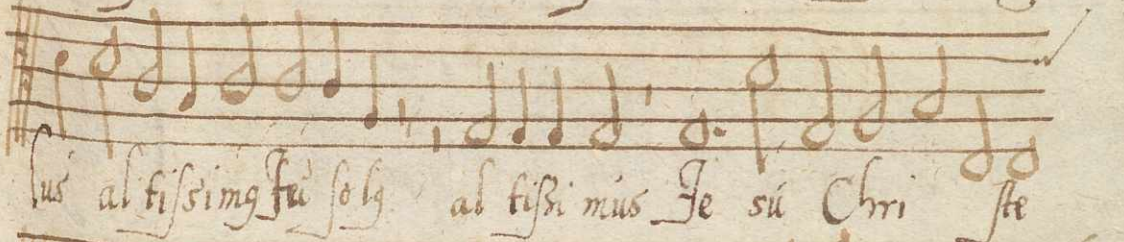 lus altissimꝰ Tu solꝰ altissimus Jesu Christe